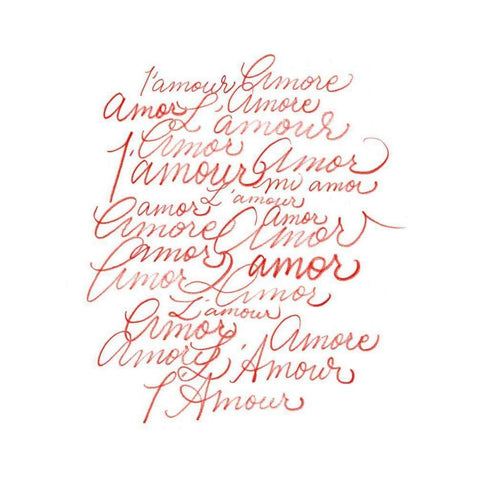 l'amour Amore
Amor L'Amore
amour
Amor
l'amour Amor
mi amor
L'amour
amor Amor
Amore Amor
amor amor
Amor Amor
L'amour
Amor Amore
Amor L'Amour
l'Amour